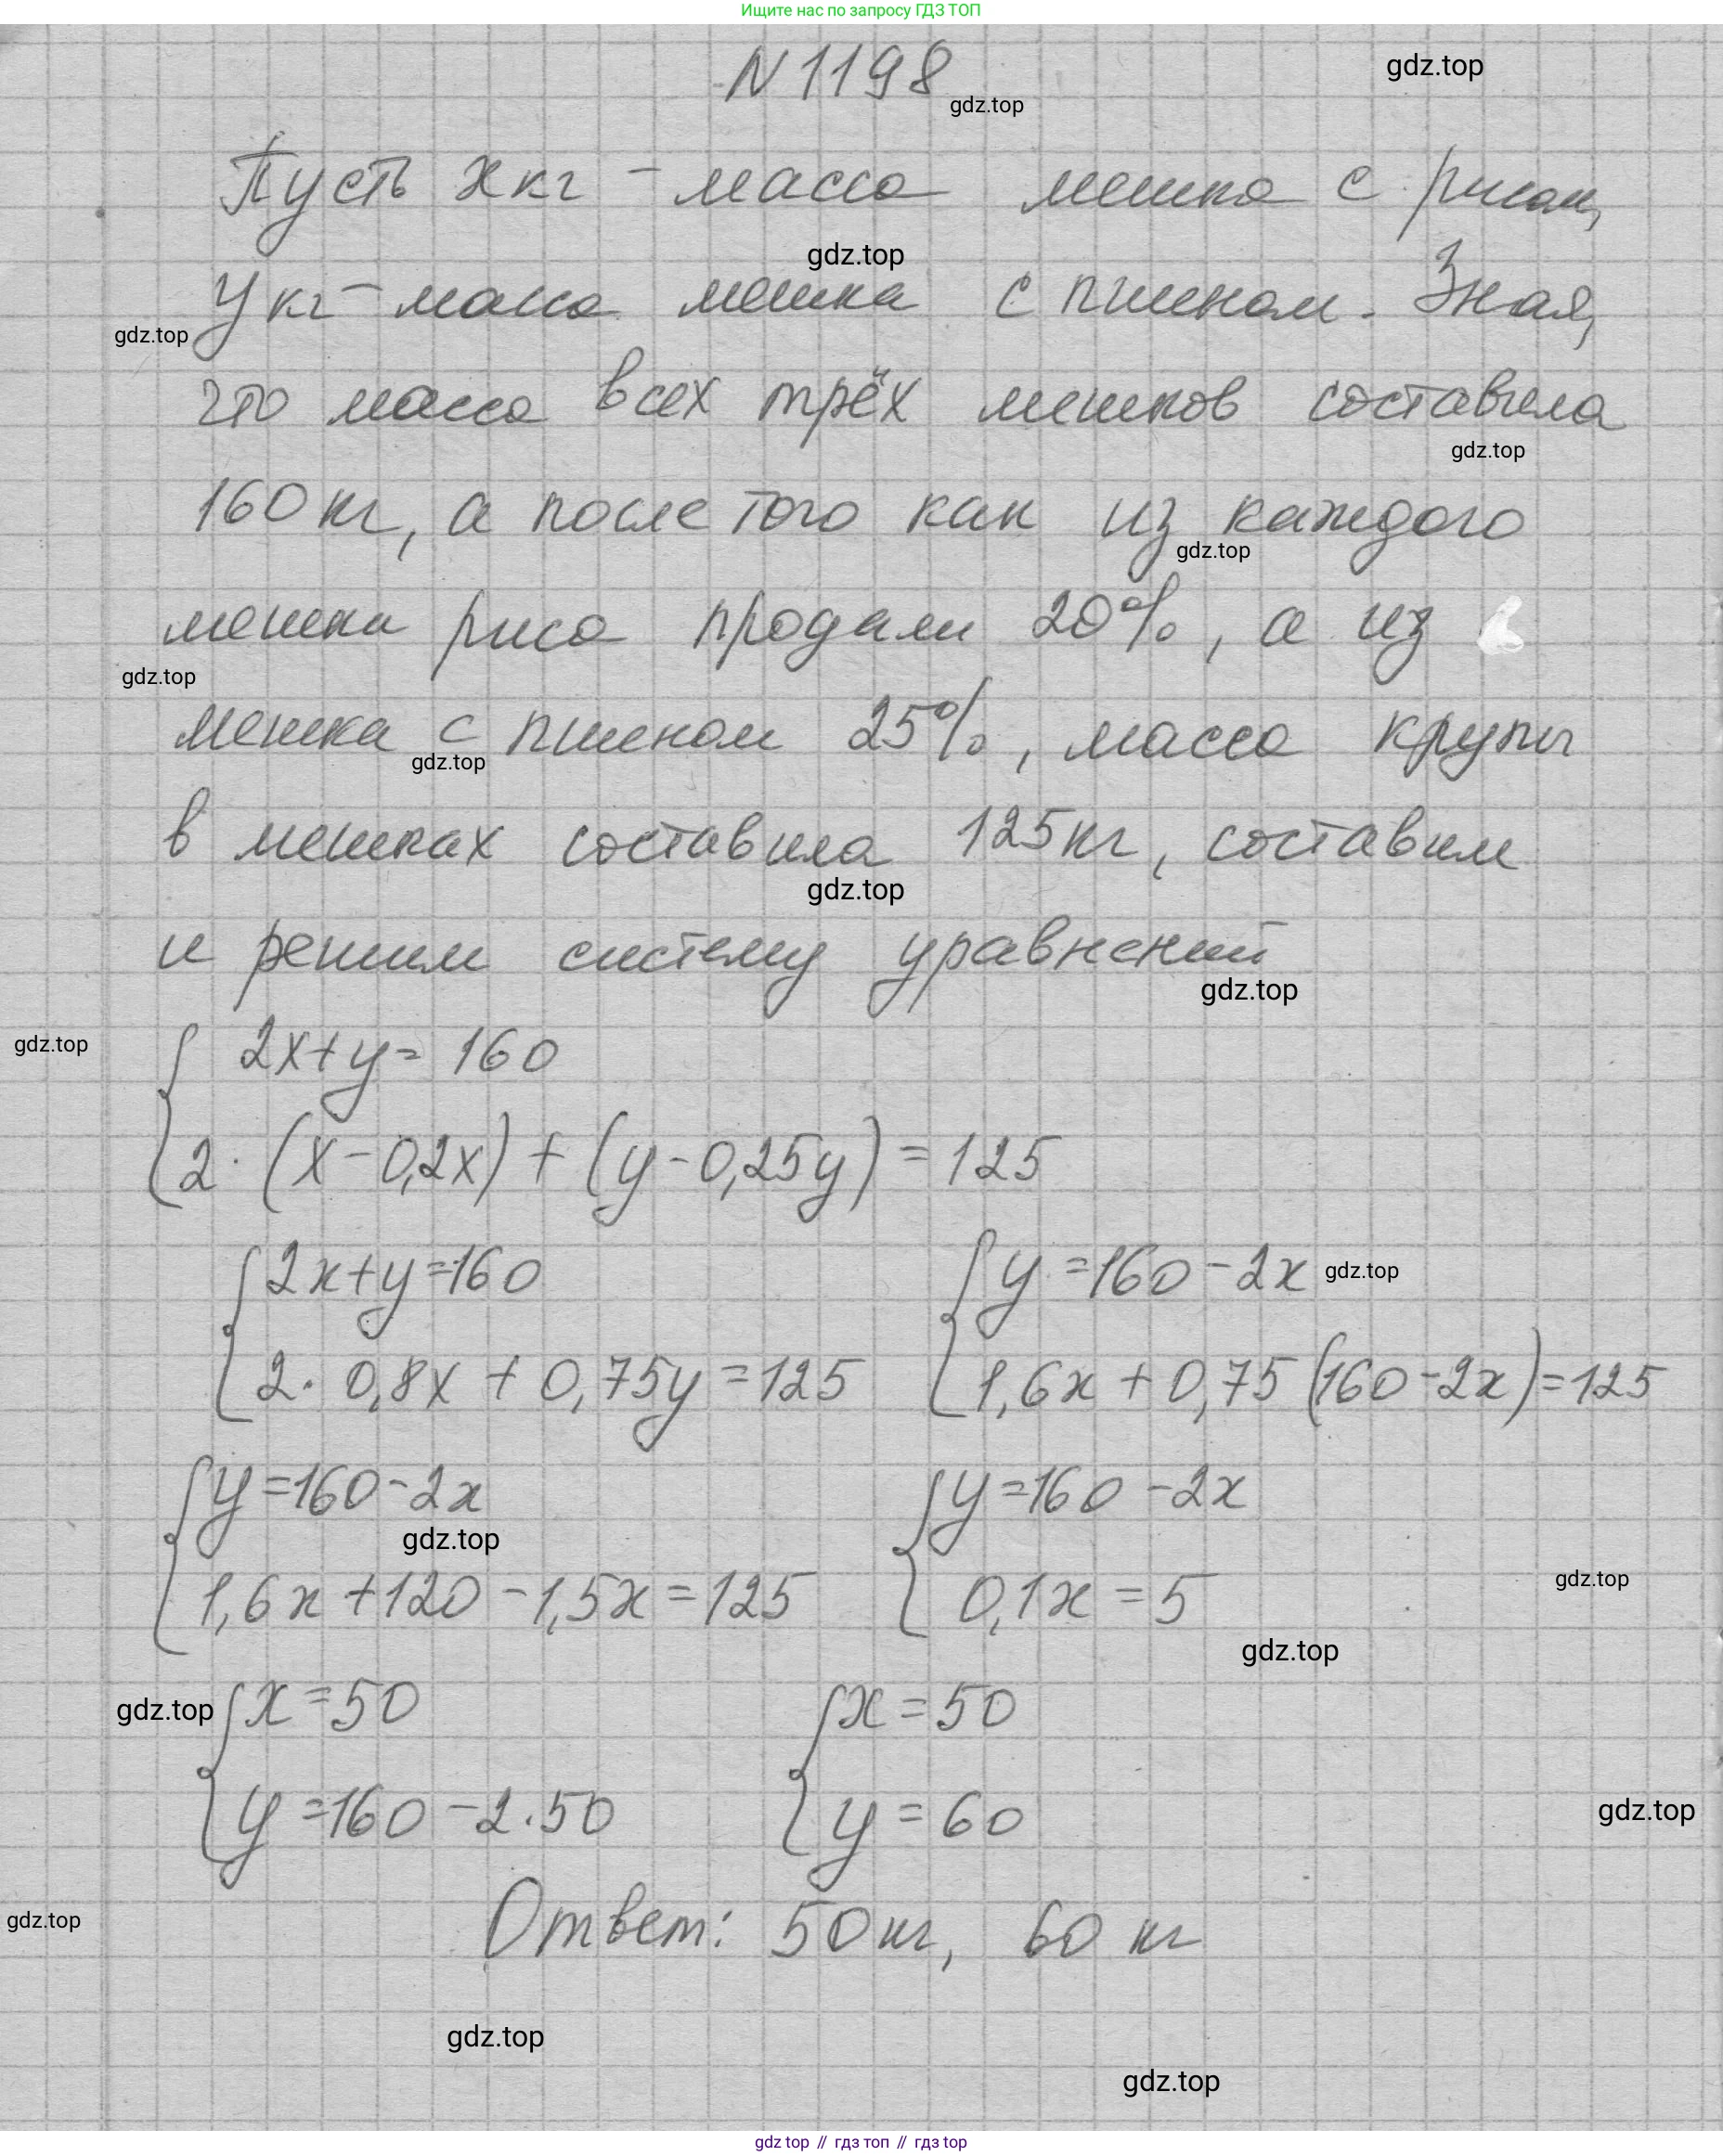 Ищите нас по запросу ГДЗ ТОП
N 1198
gdz.top
gdz.top
Пусть x кг - масса мешка с рисом,
gdz.top
y кг - масса мешка с пшеном. Зная,
gdz.top
что масса всех трёх мешков составила
gdz.top
160 кг, а после того как из каждого
gdz.top
мешка риса продали 20%, а из
gdz.top
мешка с пшеном 25%, масса крупы
gdz.top
в мешках составила 125 кг, составим
gdz.top
и решим систему уравнений
gdz.top
gdz.top
2x+y= 160
2·(x-0,2x)+(y-0,25y)=125
2x+y=160 y=160-2x
gdz.top
2·0,8x+0,75y=125 1,6x+0,75(160-2x)=125
y=160-2x y=160-2x
gdz.top
1,6x+120-1,5x=125 0,1x=5
gdz.top
gdz.top
gdz.top
x=50 x=50
y=160-2·50 y=60
gdz.top
Ответ: 50 кг, 60 кг
gdz.top
gdz.top
gdz.top
gdz top // гдз топ // гдз top